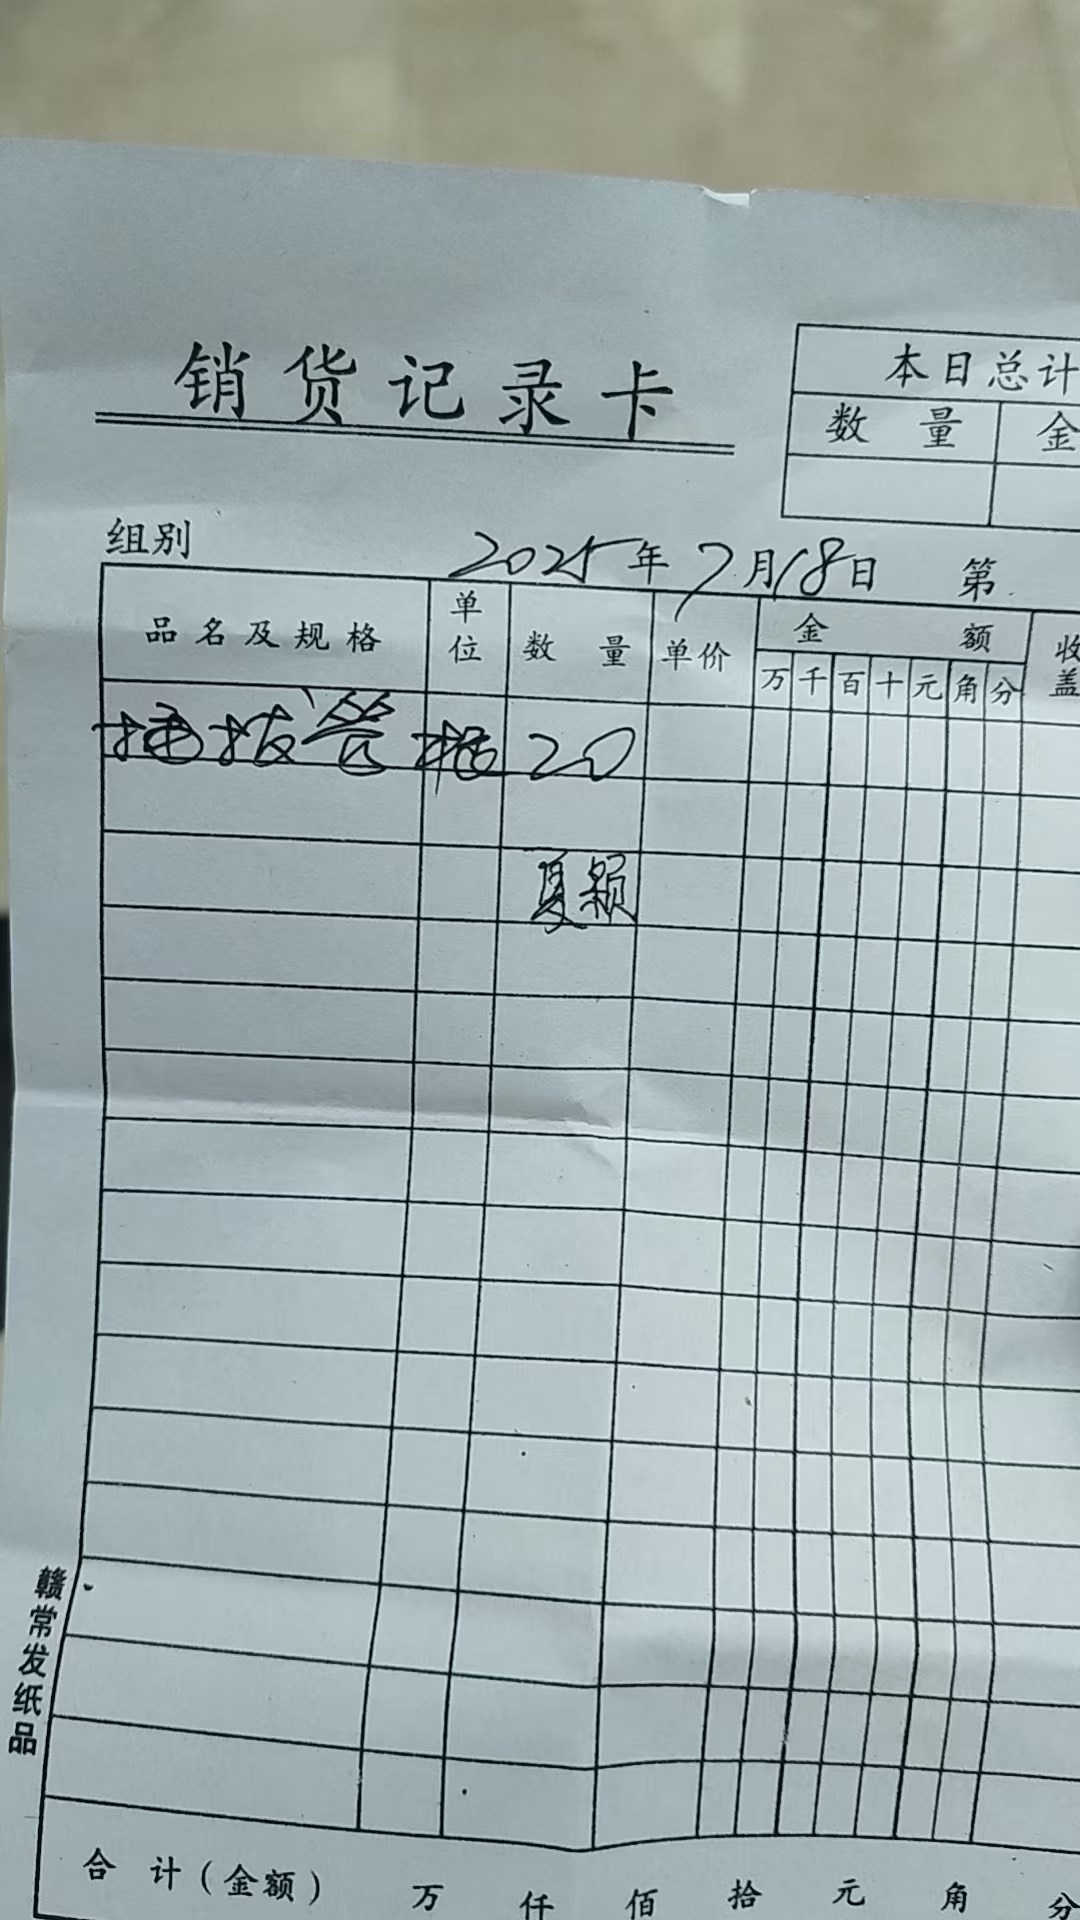 销货记录卡
本日总计
数量 金
组别 2025年7月18日 第
品名及规格 单位 数量 单价 金额 收盖
万 千 百 十 元 角 分
插拔管 根 20
夏颖
赣常发纸品
合计(金额) 万 仟 佰 拾 元 角 分